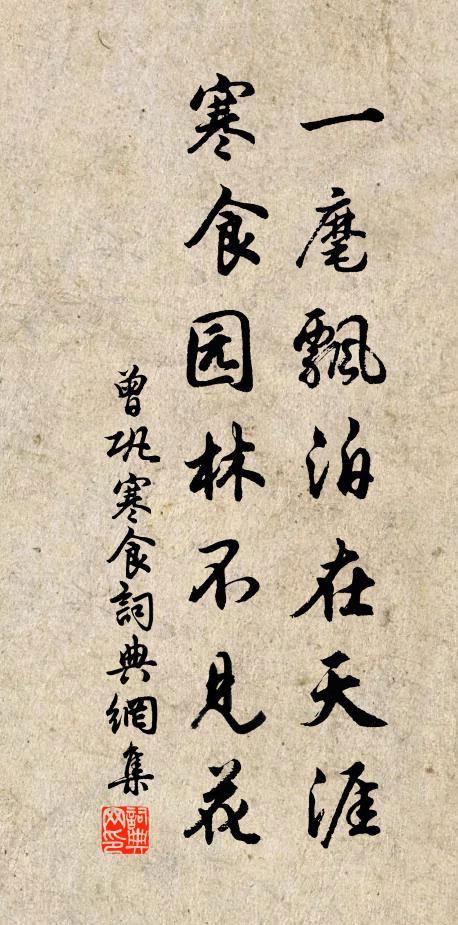 一麾飄泊在天涯
寒食园林不見花
曾巩寒食詞典網集
詞典网印